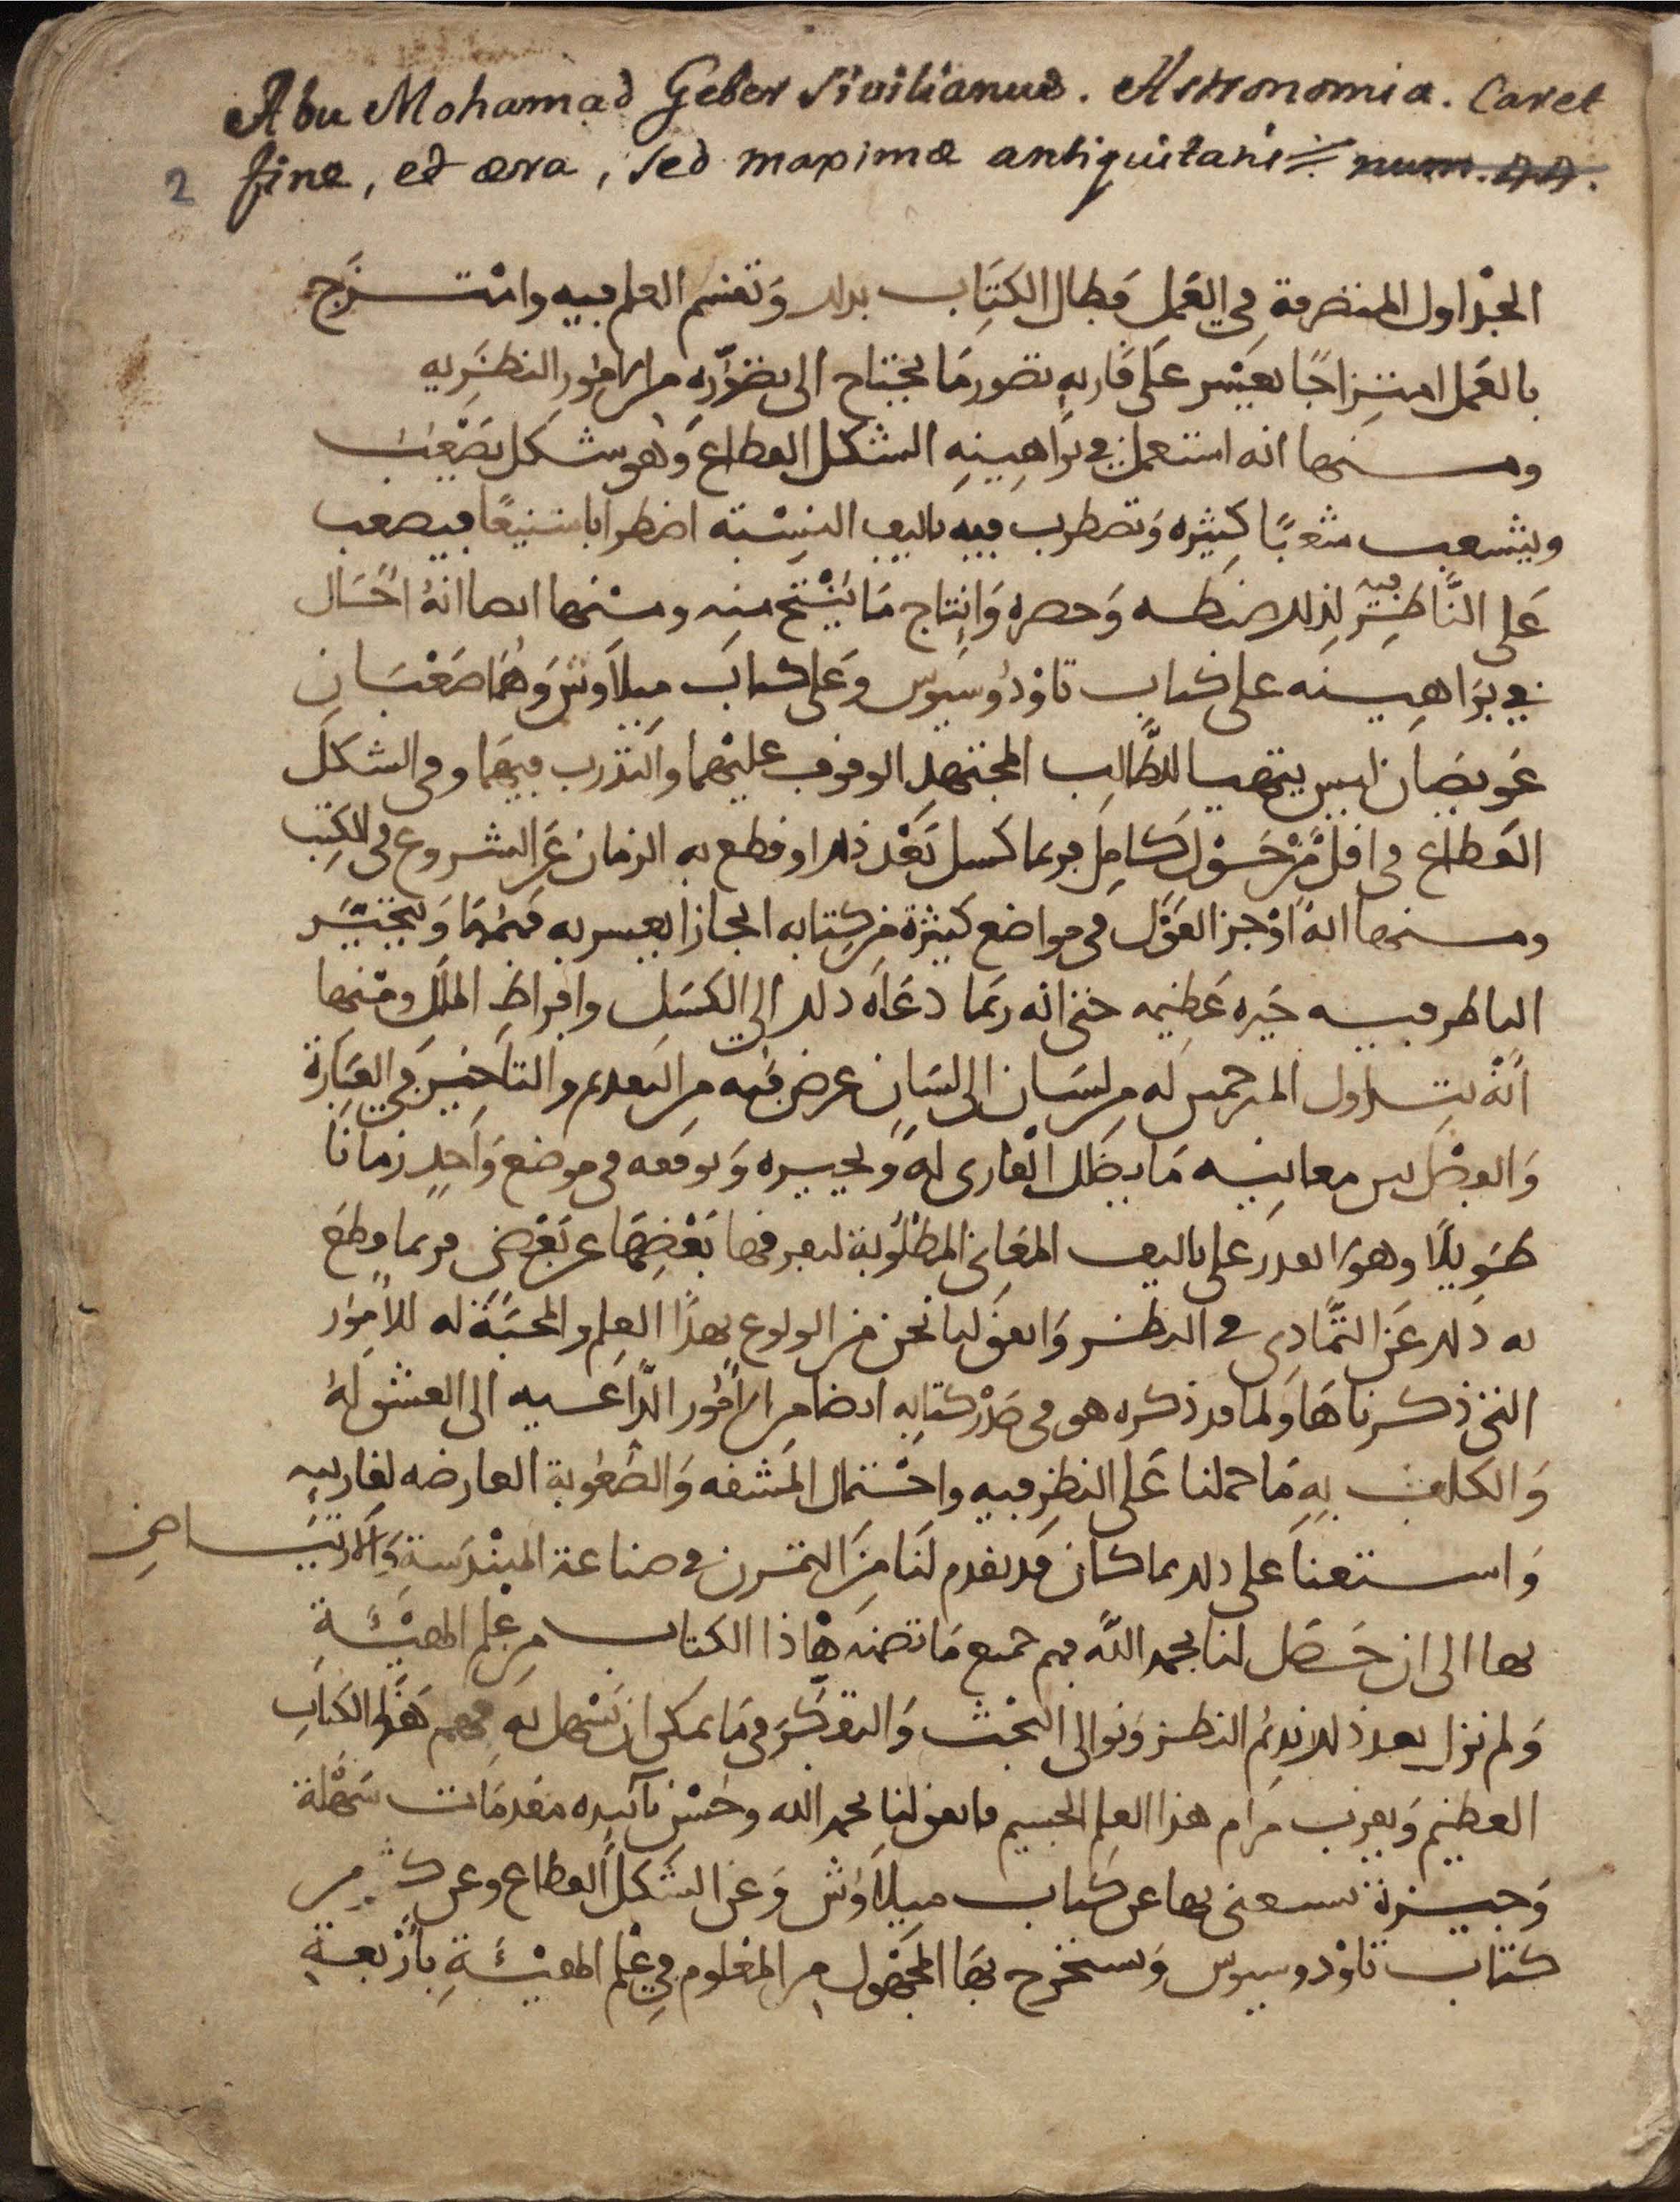 Abu Mohamad Geber Sivilianus. Astronomia. Caret
2 fine, et æra, sed maximæ antiquitatis. num.
الجداول المتصرفة في العمل فطال الكتاب بذلك وَتقسم العلم فيه وامتـــزج
بالعمل امتزاجًا يعسر على قاريه تصور ما يحتاج الى تصوره من الامور النظرية
ومـــنها انه استعمل في براهينه الشكل القطاع وَهو شكل يصعب
ويتشعب شعبًا كثيره وَتضطرب فيه تاليف النسبة اضطرابا شنيعًا فيصعب
عَلى النَّاظِر فيه لذلك ضبطه وَحصره وَانتاج مَا يُنْتج منه ومنها ايضا انهُ احَال
في براهينه على كتاب تاوذوسيوس وَعلى كتاب ميلاوش وَهُما صَعْبَان
عَويصَان ليس يتهيا للطَّالب المجتهد الوقوف عليهما والتدرب فيهما وفي الشكل
القطاع في اقل من حَوْل كامل فربما كسل بَعْد ذلك او قطع به الزمان عن الشروع في الكتب
ومـــنها انه اوْجز القَوْل في مواضع كثيرة من كتابه ايجازا يعسر به فهمها وَيتحيَّر
الناظر فيه حَيره عَظيمه حتى انه ربّما دعَاه ذلك الى الكسَل وافراط الملَل ومنْها
انّهُ بتداول المترجمين له من لسَان الى لسَانٍ عرض فيه من التقديم والتاخير في العِبَارة
وَالفصْل بين معانيه مَا يضلل القاري له وَيحيره وَيوقفه في موضع وَاحدٍ زمانًا
طَويلًا وهوَ لا يقدر على تاليف المعَاني المطْلُوبة لتفرقها بَعْضِهَا عن بَعْضٍ فربما قطعَ
به ذلك عَن التَّمَادي في النظر وَاتفق لنا نحن من الولوع بهذَا العِلم والمحَبَّة له للأمُور
التي ذكرناهَا وَلما قد ذكره هو في صَدْر كتابه ايضا من الامُور الدَّاعيه الى العشق لهُ
وَالكلف بهِ مَا حملنا عَلى النظر فيه واحْتمال المشقه وَالصُّعُوبة العارضه لقاريه
وَاســتعنا على ذلك بما كان قد تقدم لنَا مِن التمرن في صناعة الهنْدسَةِ وَالارتيـــاض
بها الى ان حَصَل لنا بحمد اللّه فهم جميع مَا تضمنه هَاذا الكتاب من عِلم الهيْئَةِ
وَلم نزل بعد ذلك نديمُ النظر وَنوالي البَحْث وَالتفكّر في مَا يمكن ان نسْهل به فهم هَذا الكتاب
العظيم وَيقرب مرام هذا العِلم الجسيم فاتفق لنا بحمد الله وحُسْن تأييده مقدمَات سَهْلة
وَجيزة نستغنى بها عن كتاب ميلاَوُش وَعَن الشكل القطاع وعن كثير من
كتاب تاوذوسيوس وَنستخرج بهَا المجْهُول من المعْلوم في عِلْم الهيْئَةِ بأرْبعةِ